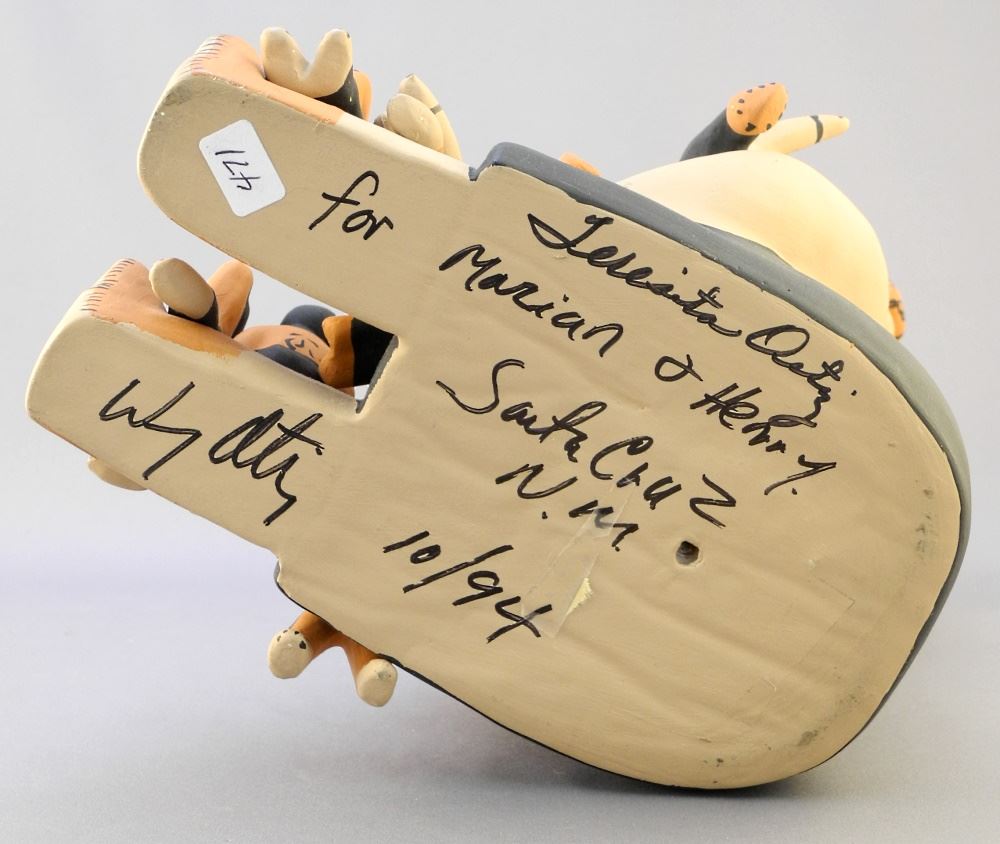 471
Teresita Ortiz
for Marian & Henry.
Santa Cruz
N.M.
10/94
Ortiz